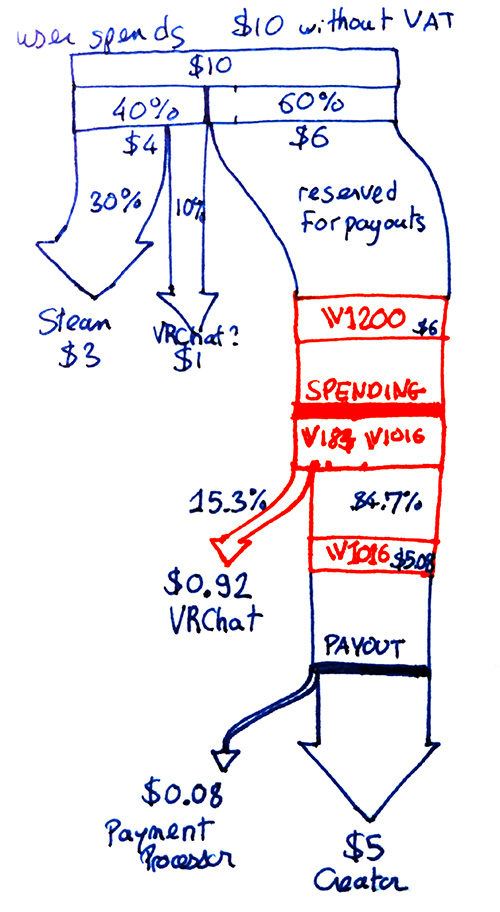 user spends $10 without VAT
$10
40% 60%
$4 $6
30% 10%
reserved
For payouts
Steam
$3
VRChat?
$1
W1200 $6
SPENDING
W184 W1016
15.3% 84.7%
W1016 $5.08
$0.92
VRChat
PAYOUT
$0.08
Payment
Processor
$5
Creator